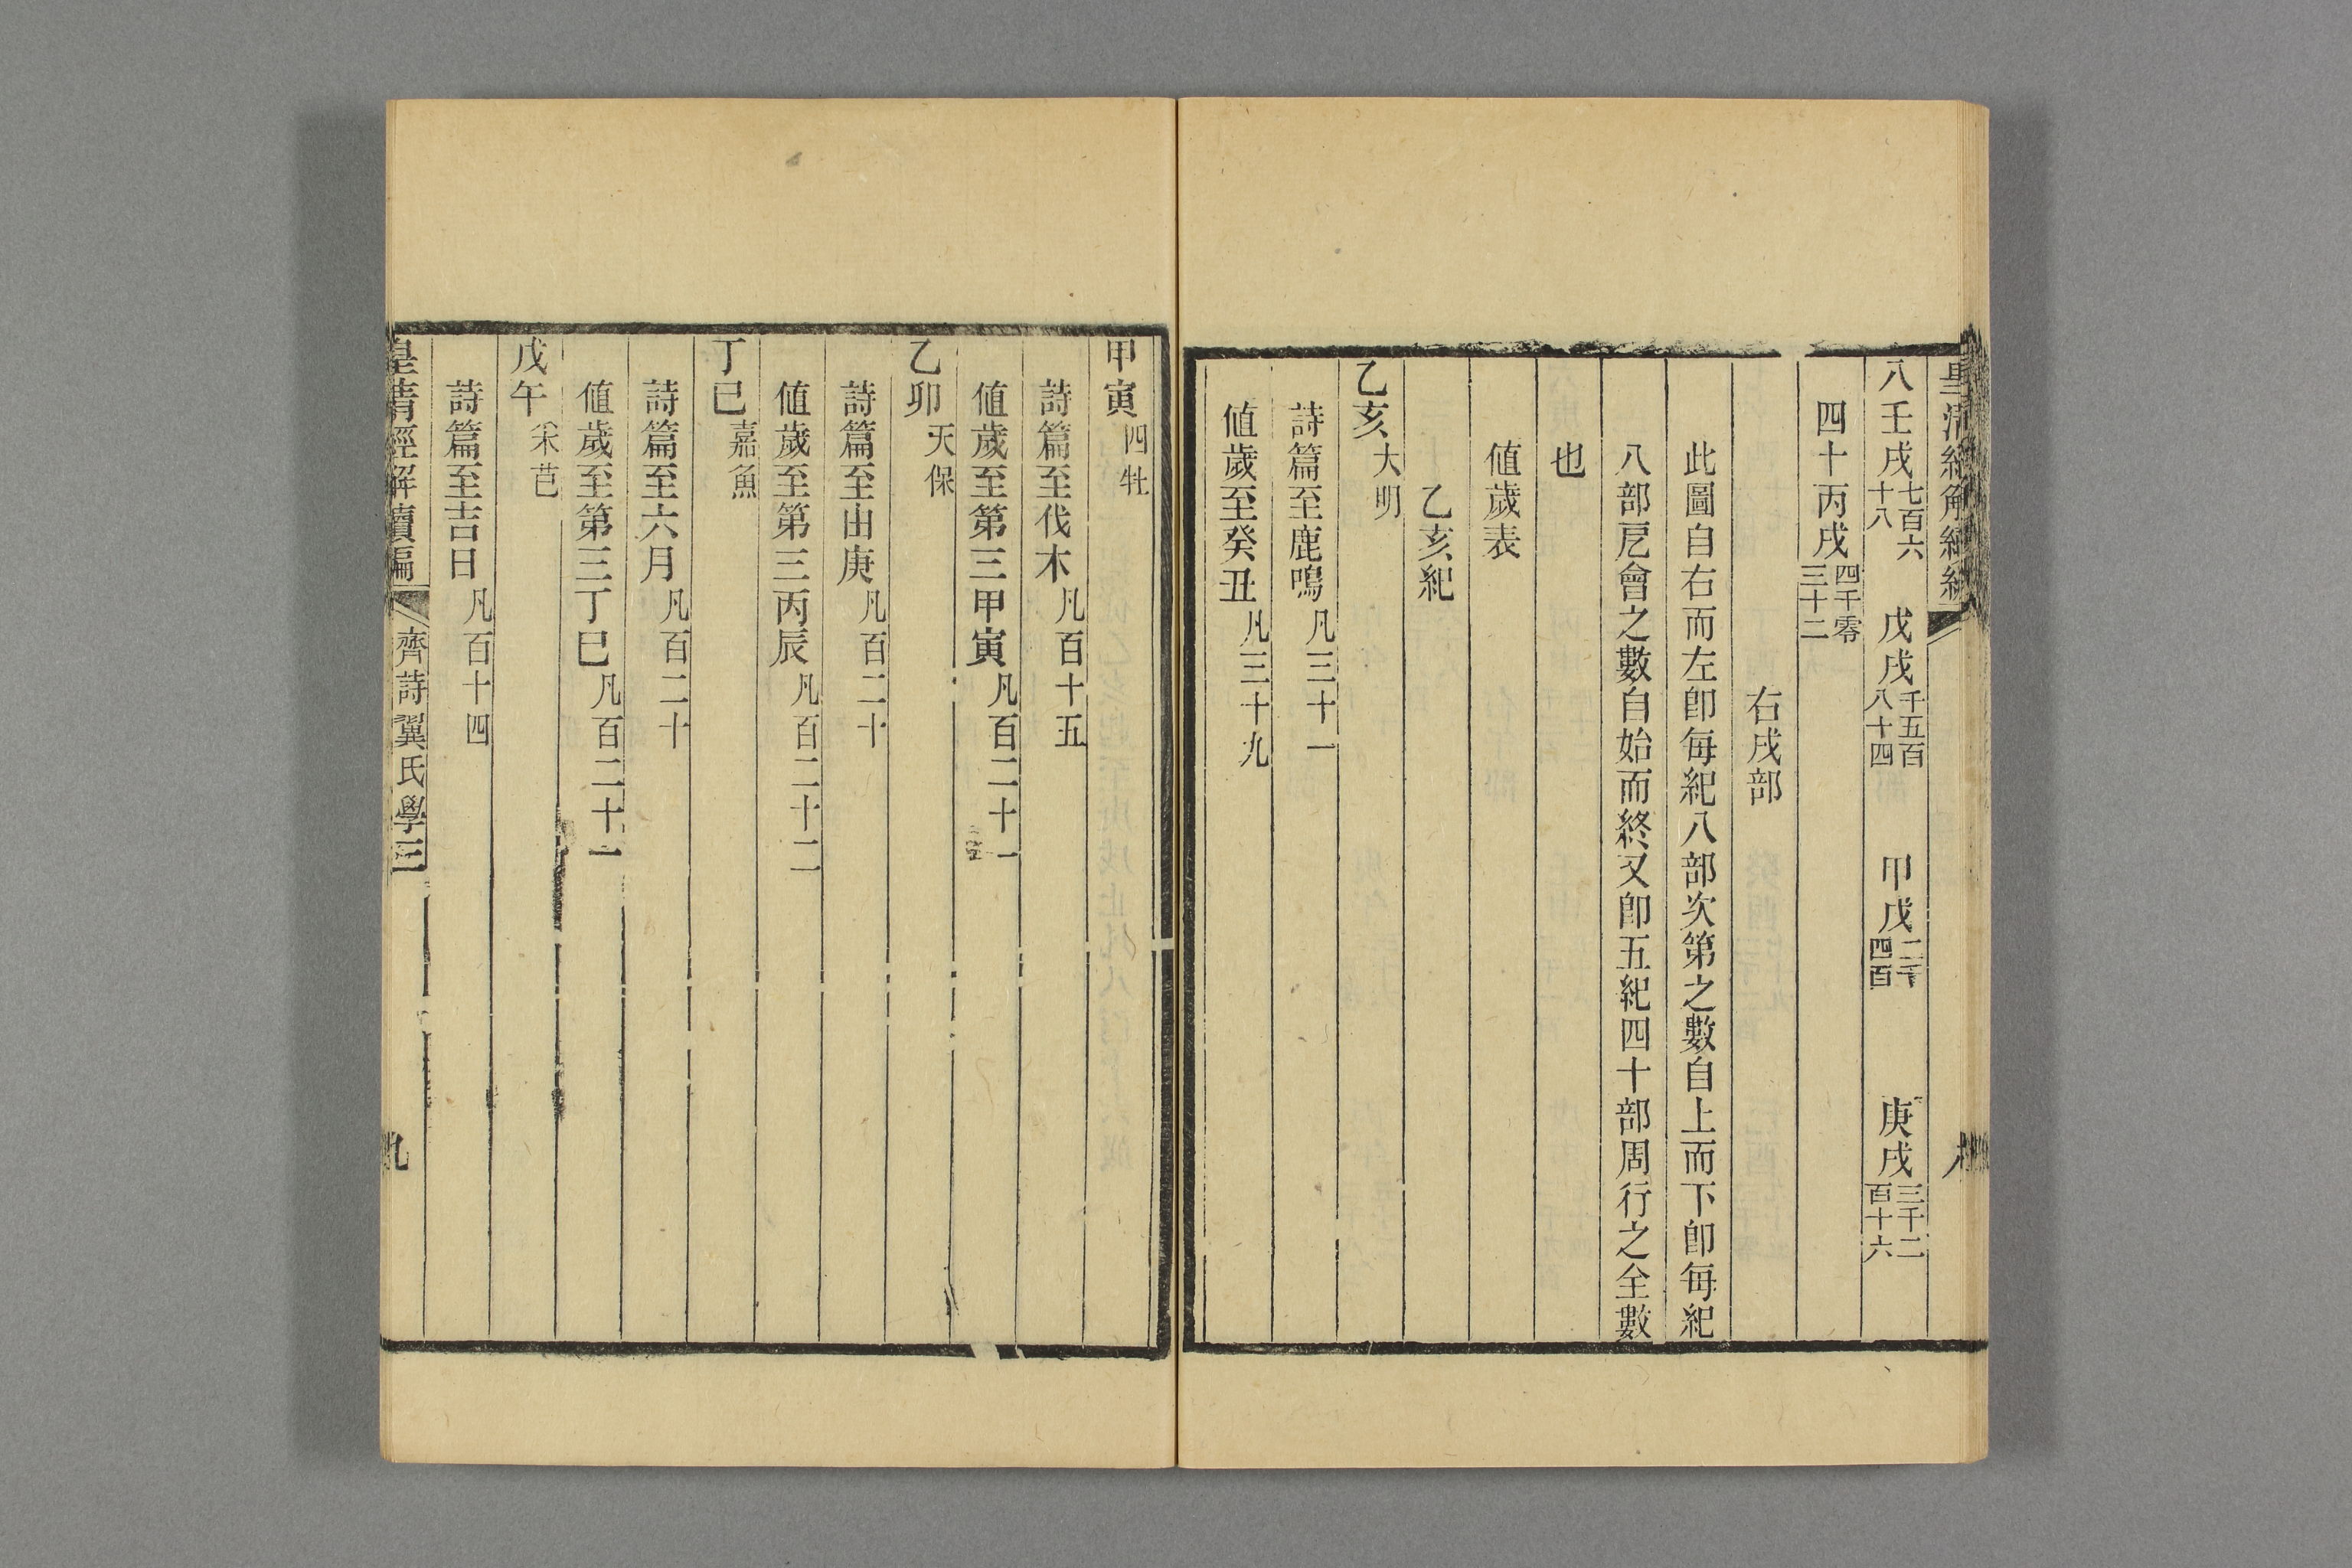 皇清經解續編
八
八壬戌七百六十八　戊戌千五百八十四　甲戌二千四百　庚戌三千二百十六
四十丙戌四千零三十二
右戌部
此圖自右而左卽每紀八部次第之數自上而下卽每紀
八部戹會之數自始而終又卽五紀四十部周行之全數
也
値歲表
乙亥紀
乙亥大明
詩篇至鹿鳴凡三十一
値歲至癸丑凡三十九
甲寅四牡
詩篇至伐木凡百十五
値歲至第三甲寅凡百二十一
乙卯天保
詩篇至由庚凡百二十
値歲至第三丙辰凡百二十二
丁巳嘉魚
詩篇至六月凡百二十
値歲至第三丁巳凡百二十一
戊午采芑
詩篇至吉日凡百十四
皇清經解續編
齊詩翼氏學三
九